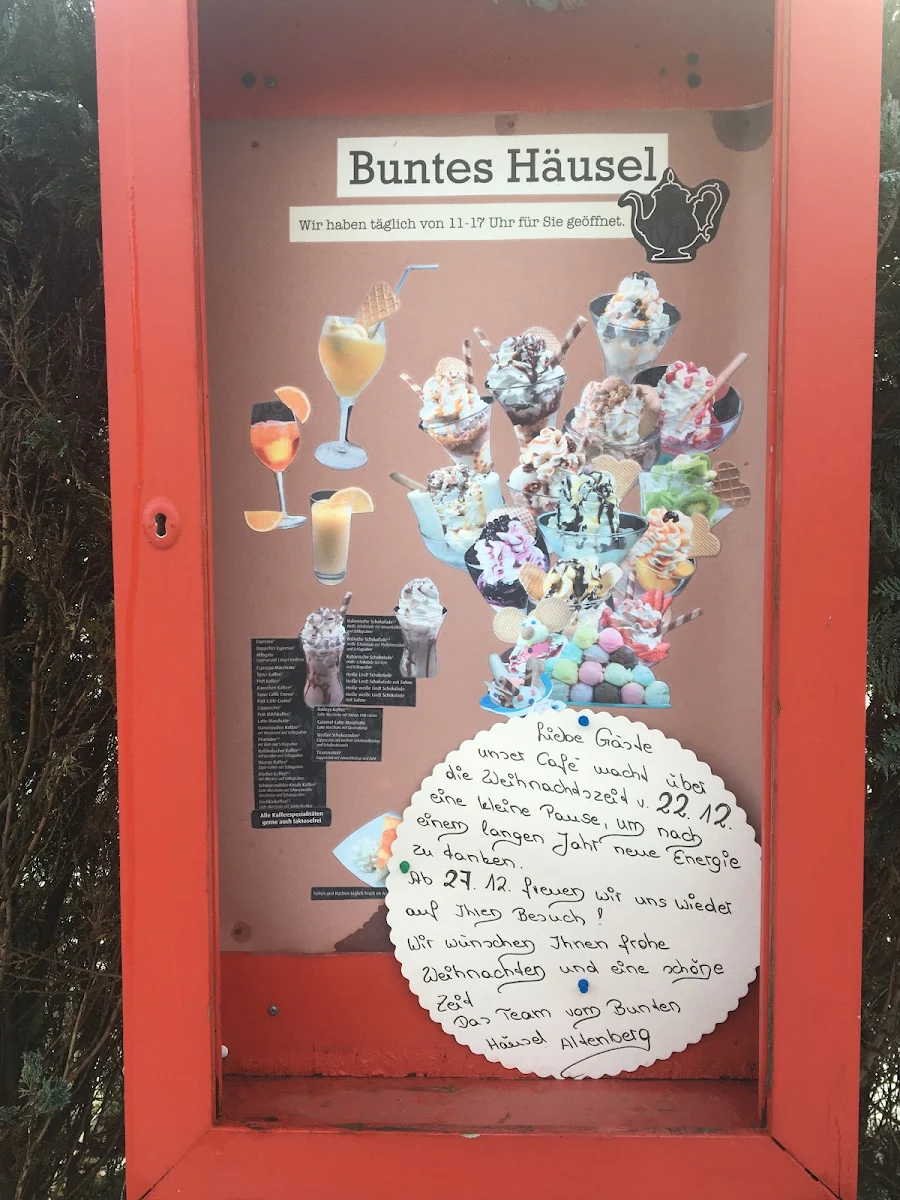 Buntes Häusel
Wir haben täglich von 11-17 Uhr für Sie geöffnet.
Espresso
Doppelter Espresso
Affogato
Espresso Macchiato
Tasse Kaffee
Pott Kaffee
Kännchen Kaffee
Tasse Caffè Crema
Pott Caffè Crema
Cappuccino
Pott Milchkaffee
Latte Macchiato
Französischer Kaffee
Pharisäer
Holländischer Kaffee
Wiener Kaffee
Irischer Kaffee
Schwarzwälder Kirsch Kaffee
Alle Kaffeespezialitäten
gerne auch laktosefrei
Italienische Schokolade
Heiße Schokolade mit Amaretto
und Schlagsahne
Irische Schokolade
und Schlagsahne
Kubanische Schokolade
Heiße Schokolade mit Rum
und Schlagsahne
Heiße Lindt Schokolade
Heiße Lindt Schokolade mit Sahne
Heiße weiße Lindt Schokolade
mit Sahne
Baileys Kaffee
Caramel-Latte Macchiato
Weißer Schokozauber
Tiramisu
Torten und Kuchen täglich frisch im
Liebe Gäste
unser Café macht über
die Weihnachtszeit v. 22.12.
eine kleine Pause, um nach
einem langen Jahr neue Energie
zu tanken.
Ab 27.12. freuen wir uns wieder
auf Ihren Besuch!
Wir wünschen Ihnen frohe
Weihnachten und eine schöne
Zeit
Das Team vom Bunten
Häusel Altenberg